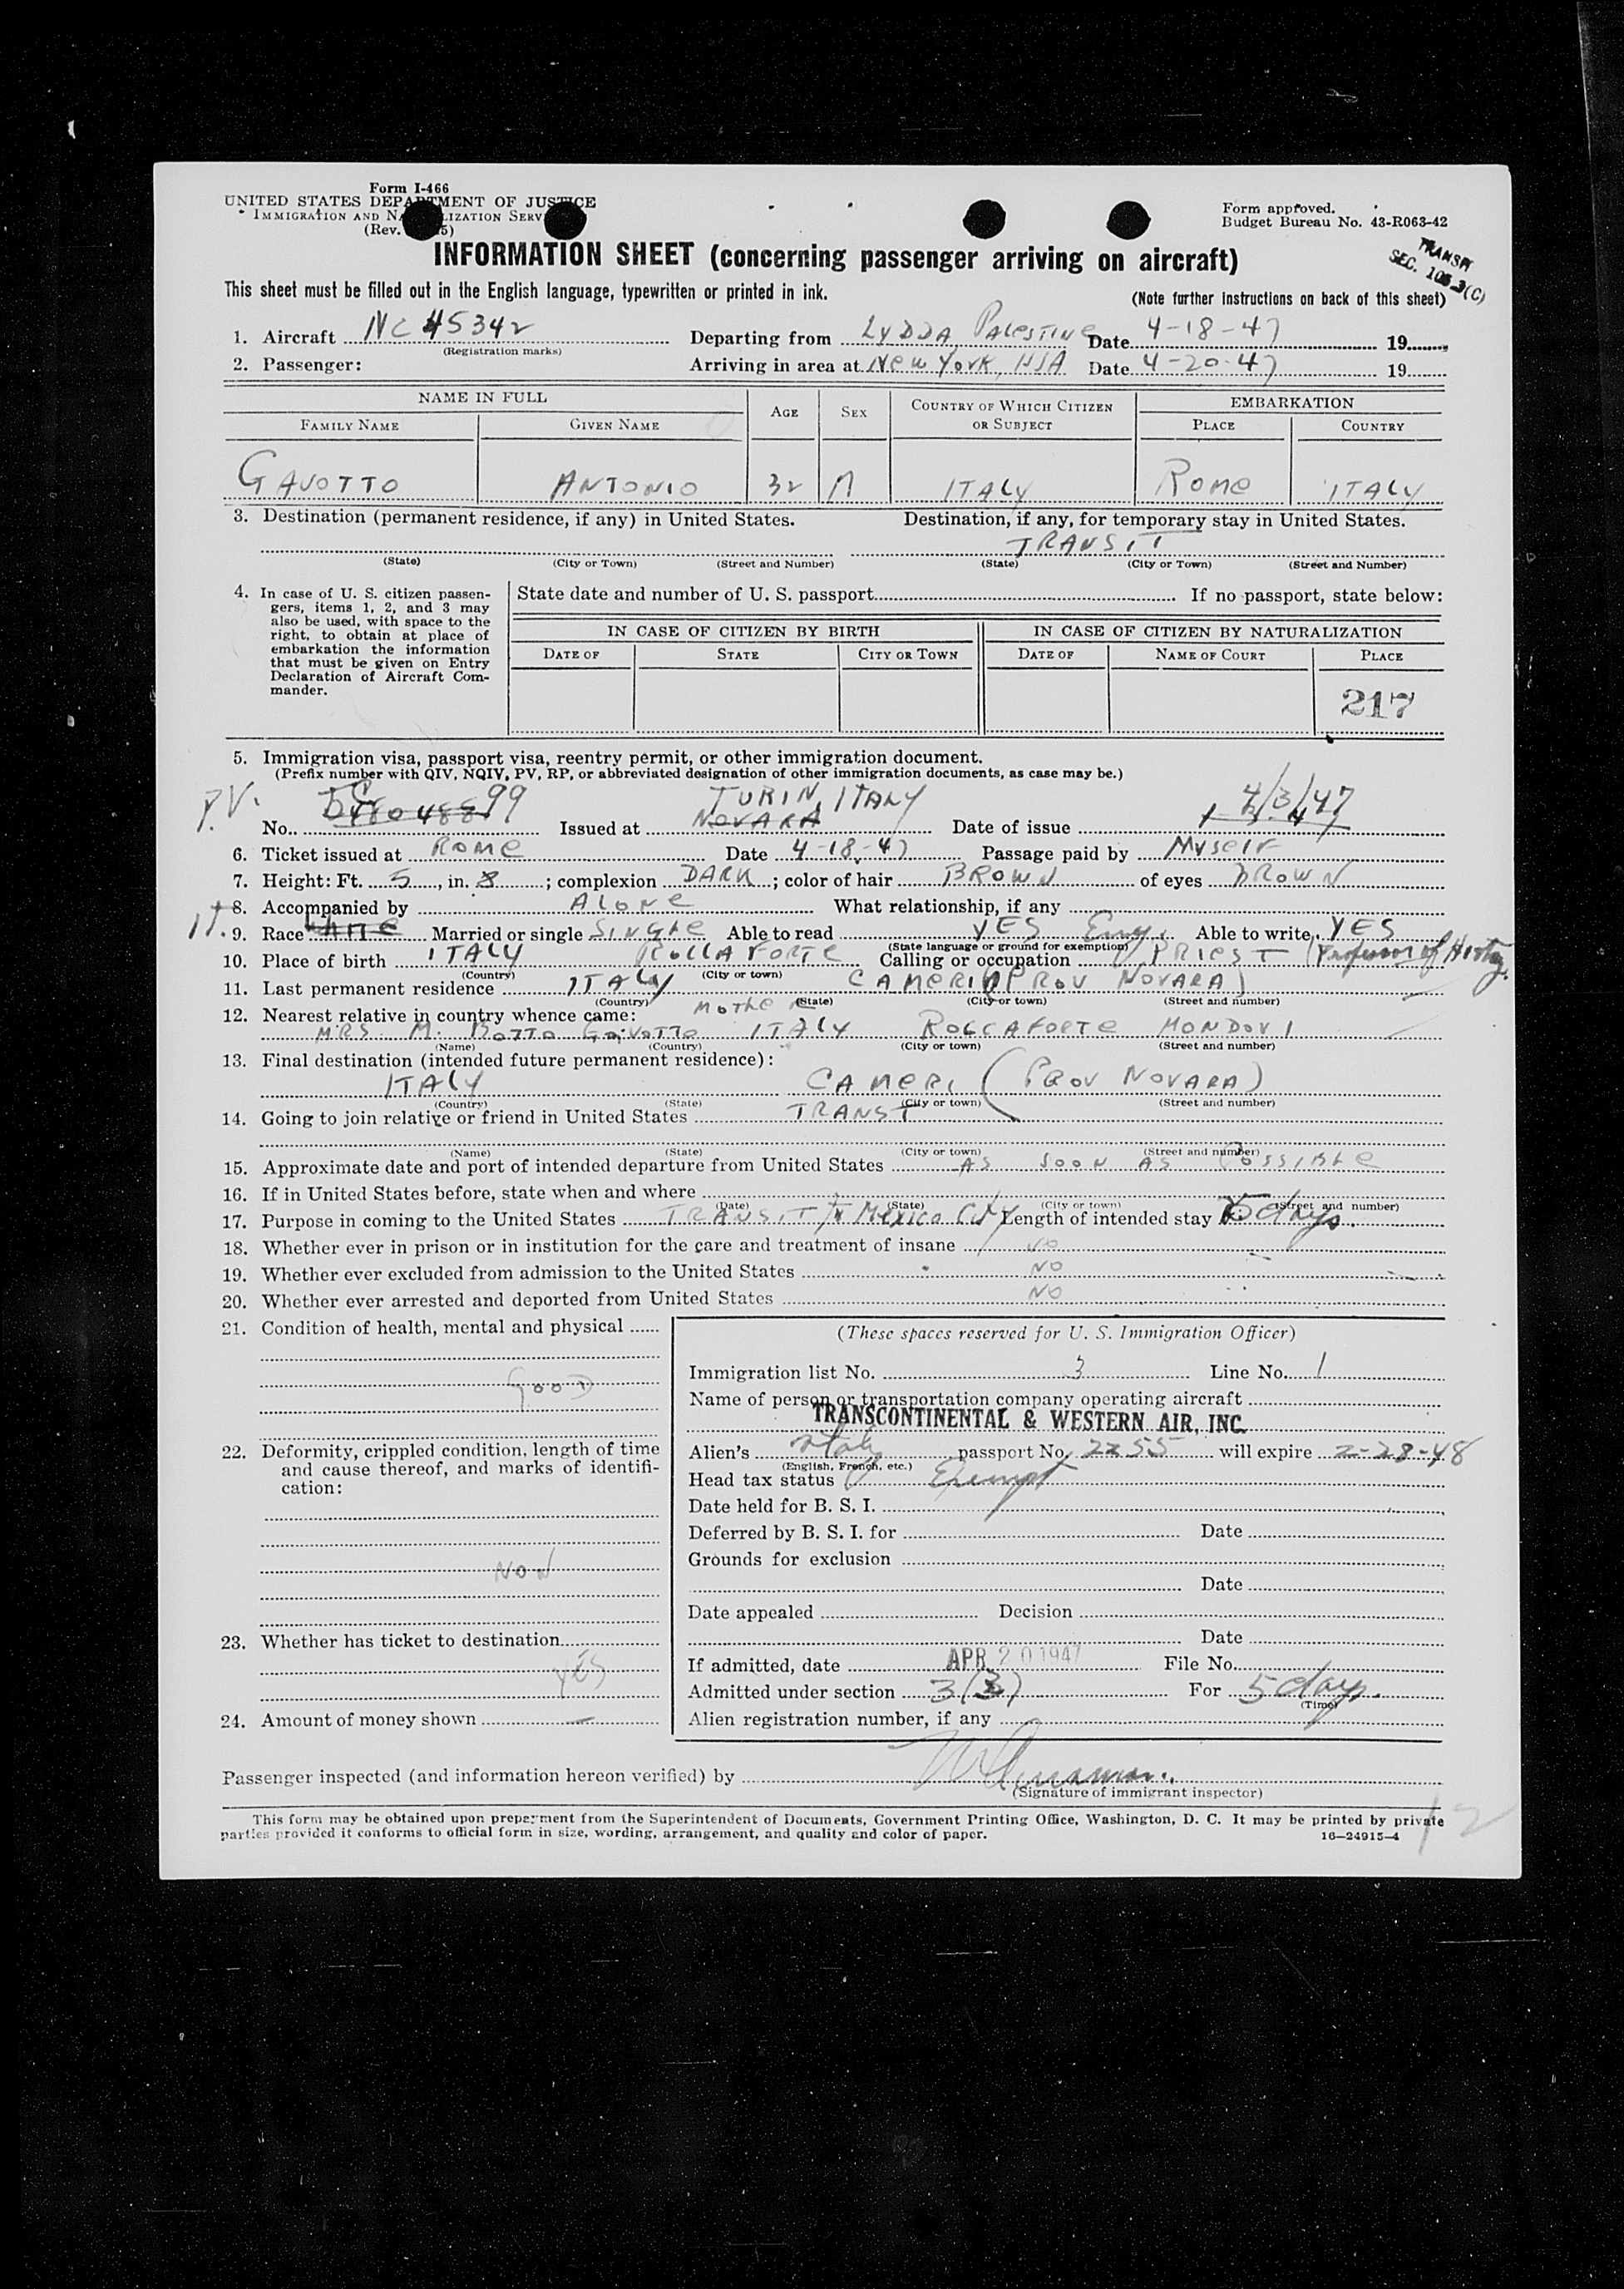 Form I-466
UNITED STATES DEPARTMENT OF JUSTICE
IMMIGRATION AND NATURALIZATION SERVICE
(Rev. 5)
Form approved.
Budget Bureau No. 43-R063-42
INFORMATION SHEET (concerning passenger arriving on aircraft)
TRANSIT
SEC. 3(C)
This sheet must be filled out in the English language, typewritten or printed in ink.
(Note further instructions on back of this sheet)
1. Aircraft NC 45342 Departing from LYDDA, PALESTINE Date 4-18-47 19
(Registration marks)
2. Passenger: Arriving in area at New York, USA Date 4-20-47 19
NAME IN FULL AGE SEX COUNTRY OF WHICH CITIZEN OR SUBJECT EMBARKATION
FAMILY NAME GIVEN NAME PLACE COUNTRY
GAVOTTO ANTONIO 32 M ITALY ROME ITALY
3. Destination (permanent residence, if any) in United States. Destination, if any, for temporary stay in United States.
TRANSIT
(State) (City or Town) (Street and Number) (State) (City or Town) (Street and Number)
4. In case of U. S. citizen passengers, items 1, 2, and 3 may also be used, with space to the right, to obtain at place of embarkation the information that must be given on Entry Declaration of Aircraft Commander.
State date and number of U. S. passport If no passport, state below:
IN CASE OF CITIZEN BY BIRTH IN CASE OF CITIZEN BY NATURALIZATION
DATE OF STATE CITY OR TOWN DATE OF NAME OF COURT PLACE
217
5. Immigration visa, passport visa, reentry permit, or other immigration document.
(Prefix number with QIV, NQIV, PV, RP, or abbreviated designation of other immigration documents, as case may be.)
P.V. 99 TURIN, ITALY 4/3/47
No. Issued at NOVARA Date of issue
6. Ticket issued at ROME Date 4-18-47 Passage paid by MYSELF
7. Height: Ft. 5, in. 8; complexion DARK; color of hair BROWN of eyes BROWN
8. Accompanied by ALONE What relationship, if any
It. 9. Race Married or single SINGLE Able to read YES Able to write YES
(State language or ground for exemption)
10. Place of birth ITALY ROCCAFORTE Calling or occupation PRIEST (Professor of History)
(Country) (City or town)
11. Last permanent residence ITALY CAMERI (PROV NOVARA)
(Country) (State) (City or town) (Street and number)
12. Nearest relative in country whence came: MOTHER
MRS M. BOTTO GAVOTTO ITALY ROCCAFORTE MONDOVI
(Name) (Country) (City or town) (Street and number)
13. Final destination (intended future permanent residence):
ITALY CAMERI (PROV NOVARA)
(Country) (State) (City or town) (Street and number)
14. Going to join relative or friend in United States TRANSIT
(Name) (State) (City or town) (Street and number)
15. Approximate date and port of intended departure from United States AS SOON AS POSSIBLE
16. If in United States before, state when and where
(Date) (State) (City or town) (Street and number)
17. Purpose in coming to the United States TRANSIT to Mexico City Length of intended stay 5 days.
18. Whether ever in prison or in institution for the care and treatment of insane NO
19. Whether ever excluded from admission to the United States NO
20. Whether ever arrested and deported from United States NO
21. Condition of health, mental and physical
GOOD
22. Deformity, crippled condition, length of time and cause thereof, and marks of identification:
NON
23. Whether has ticket to destination
YES
24. Amount of money shown —
(These spaces reserved for U. S. Immigration Officer)
Immigration list No. 3 Line No. 1
Name of person or transportation company operating aircraft
TRANSCONTINENTAL & WESTERN AIR, INC.
Alien's Italy passport No. 2255 will expire 2-28-48
(English, French, etc.)
Head tax status Exempt
Date held for B. S. I.
Deferred by B. S. I. for Date
Grounds for exclusion
Date
Date appealed Decision
Date
If admitted, date APR 20 1947 File No.
Admitted under section 3(3) For 5 days.
(Time)
Alien registration number, if any
Passenger inspected (and information hereon verified) by
(Signature of immigrant inspector)
This form may be obtained upon prepayment from the Superintendent of Documents, Government Printing Office, Washington, D. C. It may be printed by private
parties provided it conforms to official form in size, wording, arrangement, and quality and color of paper. 16—24915-4
12